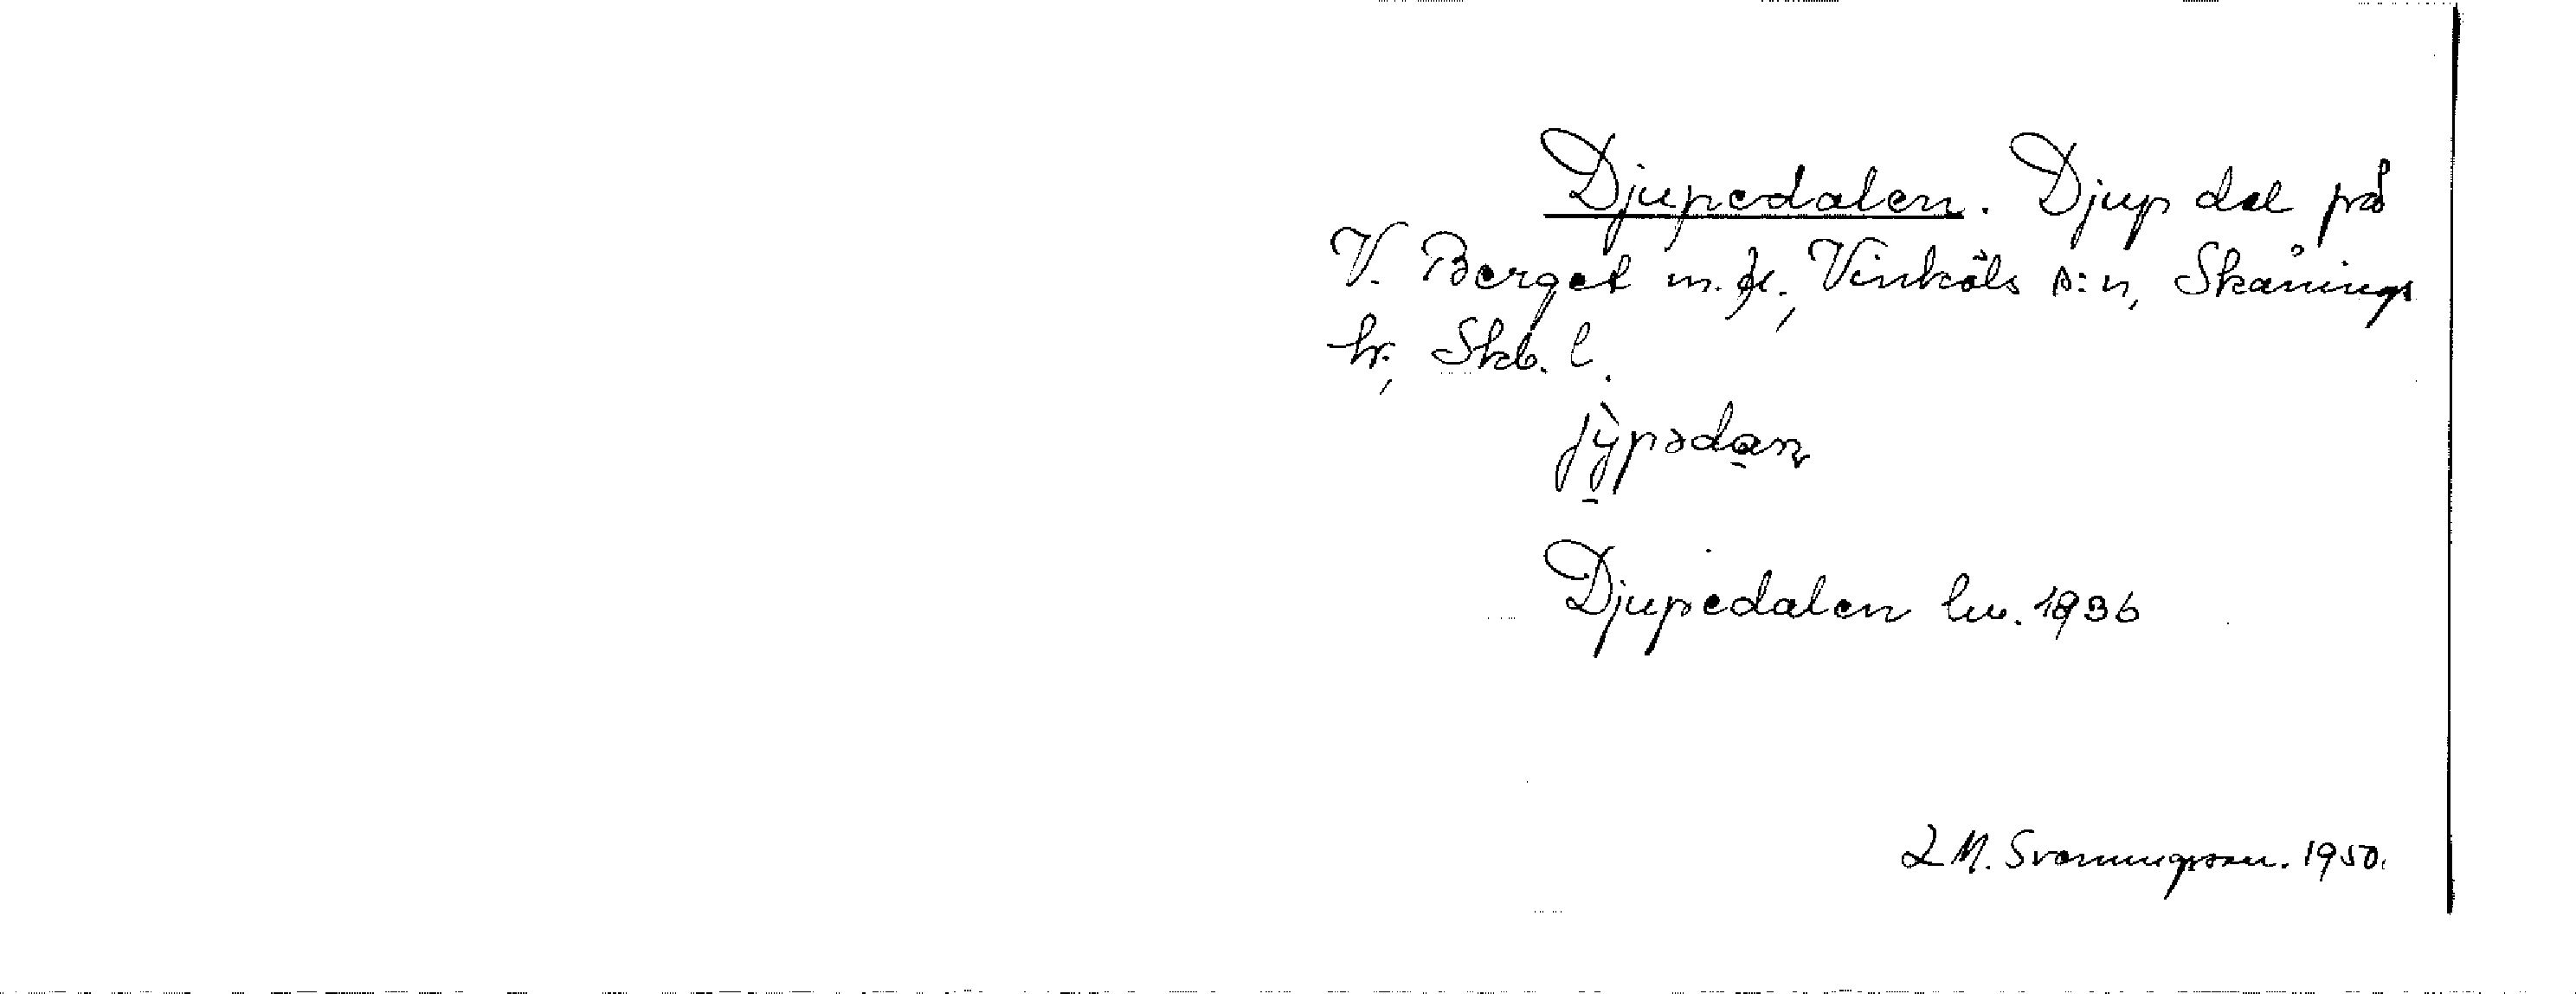 Djupedalen. Djup dal på
V. Berget m. fl., Vinköls s:n, Skånings
hr, Skb. l.
jỳpədan
Djupedalen lm. 1936
L M. Svanungsson. 1950.